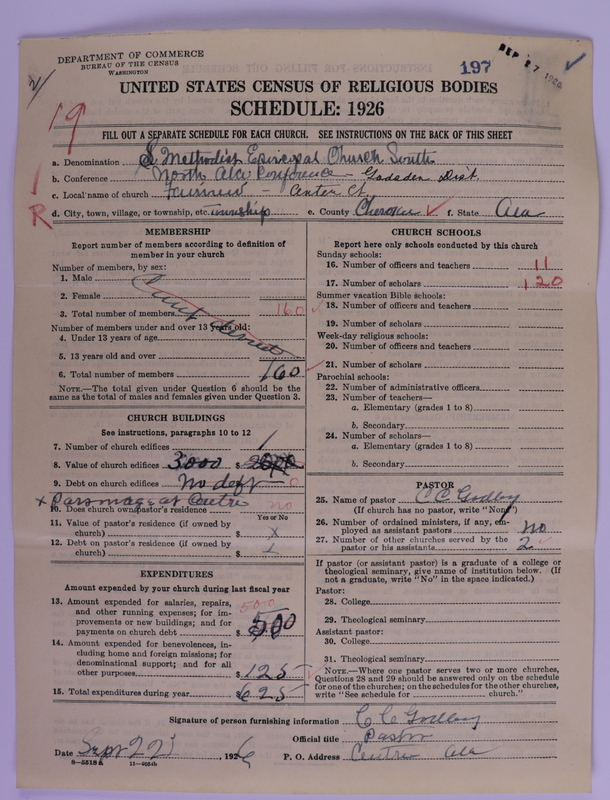 DEPARTMENT OF COMMERCE
BUREAU OF THE CENSUS
WASHINGTON
197
SEP 27 1926
UNITED STATES CENSUS OF RELIGIOUS BODIES
SCHEDULE: 1926
19
FILL OUT A SEPARATE SCHEDULE FOR EACH CHURCH. SEE INSTRUCTIONS ON THE BACK OF THIS SHEET
a. Denomination Methodist Episcopal Church South
b. Conference North Ala Conference - Gadsden Dist.
c. Local name of church - Center Ct.
R
d. City, town, village, or township, etc. township e. County Cherokee f. State Ala
MEMBERSHIP
Report number of members according to definition of member in your church
Number of members, by sex:
1. Male
2. Female
3. Total number of members 160
Number of members under and over 13 years old:
4. Under 13 years of age
5. 13 years old and over
6. Total number of members 160
NOTE.—The total given under Question 6 should be the same as the total of males and females given under Question 3.
CHURCH BUILDINGS
See instructions, paragraphs 10 to 12
7. Number of church edifices 1
8. Value of church edifices 3000 $
9. Debt on church edifices no dept 0
x Parsonage at Centre
10. Does church own pastor's residence? no
Yes or No
11. Value of pastor's residence (if owned by church) $ x
12. Debt on pastor's residence (if owned by church) $
EXPENDITURES
Amount expended by your church during last fiscal year
13. Amount expended for salaries, repairs, and other running expenses; for improvements or new buildings; and for payments on church debt $ 500
500
14. Amount expended for benevolences, including home and foreign missions; for denominational support; and for all other purposes $ 125
15. Total expenditures during year $ 625
CHURCH SCHOOLS
Report here only schools conducted by this church
Sunday schools:
16. Number of officers and teachers 11
17. Number of scholars 120
Summer vacation Bible schools:
18. Number of officers and teachers
19. Number of scholars
Week-day religious schools:
20. Number of officers and teachers
21. Number of scholars
Parochial schools:
22. Number of administrative officers
23. Number of teachers—
a. Elementary (grades 1 to 8)
b. Secondary
24. Number of scholars—
a. Elementary (grades 1 to 8)
b. Secondary
PASTOR
25. Name of pastor C C Godbey
(If church has no pastor, write "None")
26. Number of ordained ministers, if any, employed as assistant pastors no
27. Number of other churches served by the pastor or his assistants 2
If pastor (or assistant pastor) is a graduate of a college or theological seminary, give name of institution below. (If not a graduate, write "No" in the space indicated.)
Pastor:
28. College
29. Theological seminary
Assistant pastor:
30. College
31. Theological seminary
NOTE.—Where one pastor serves two or more churches, Questions 28 and 29 should be answered only on the schedule for one of the churches; on the schedules for the other churches, write "See schedule for church."
Signature of person furnishing information C C Godbey
Official title Pastor
Date Sept 22, 1926
P. O. Address Centre Ala
8—5518a 11—9554b